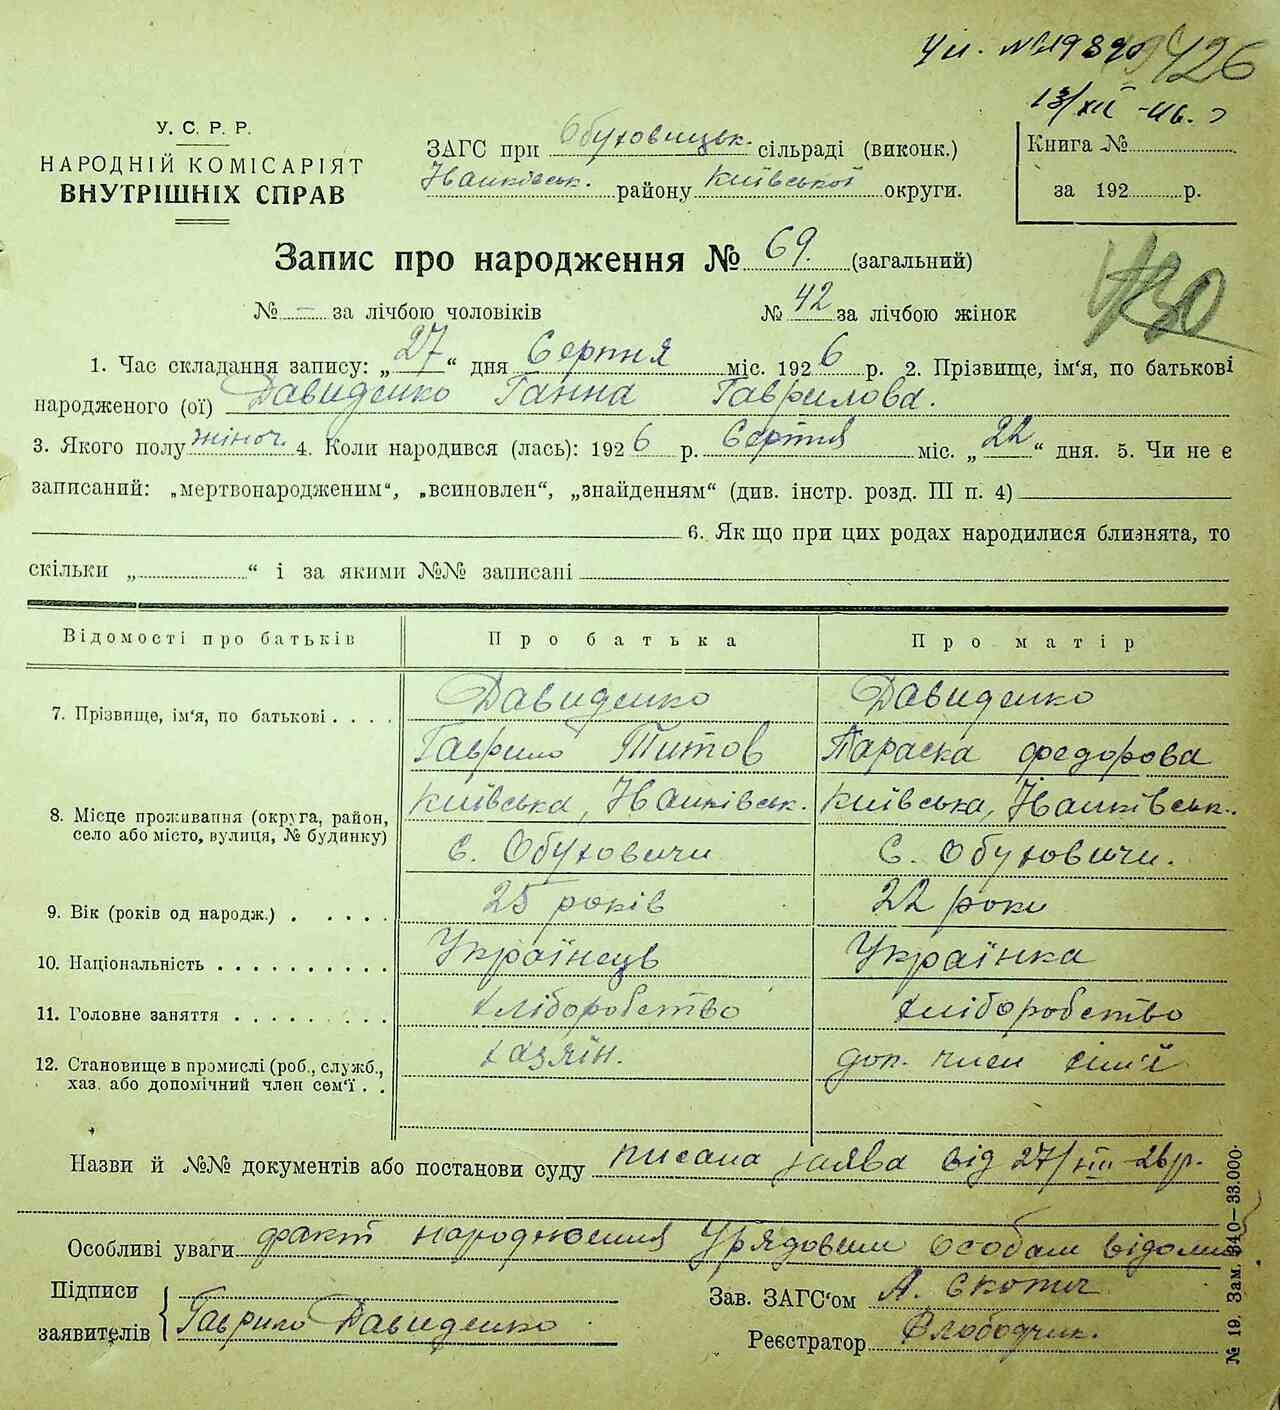 У. С. Р. Р.
НАРОДНІЙ КОМІСАРІЯТ
ВНУТРІШНІХ СПРАВ
ЗАГС при Обуховицьк. сільраді (виконк.)
Іванківськ. району Київської округи.
426
13/XII
Книга №
за 192 р.
430
Запис про народження № 69. (загальний)
№ – за лічбою чоловіків № 42 за лічбою жінок
1. Час складання запису: „27“ дня Серпня міс. 1926 р. 2. Прізвище, ім‘я, по батькові
народженого (ої) Давиденко Ганна Гаврилова.
3. Якого полу жіноч. 4. Коли народився (лась): 1926 р. Серпня міс. „22“ дня. 5. Чи не є
записаний: „мертвонародженим“, „всиновлен“, „знайденням“ (див. інстр. розд. III п. 4)
6. Як що при цих родах народилися близнята, то
скільки „ “ і за якими №№ записані
Відомості про батьків Про батька Про матір
7. Прізвище, ім‘я, по батькові . . . . Давиденко Давиденко
Гаврило Титов Параска Федорова
8. Місце проживання (округа, район, село або місто, вулиця, № будинку) Київська, Іванківськ. Київська, Іванківськ.
с. Обуховичи с. Обуховичи.
9. Вік (років од народж.) . . . . . 25 років 22 роки
10. Національність . . . . . . . . . . Українець Українка
11. Головне заняття . . . . . . . . . Хліборобство Хліборобство
12. Становище в промислі (роб., служб., хаз. або допомічний член сем‘ї . . хазяїн. доп. член сім'ї
Назви й №№ документів або постанови суду писана заява від 27/VIII-26 р.
Особливі уваги факт народження Урядовим особам відомий
Підписи
заявителів Гаврило Давиденко
Зав. ЗАГС‘ом А.
Реєстратор
№ 19. Зам. 340—33.000.